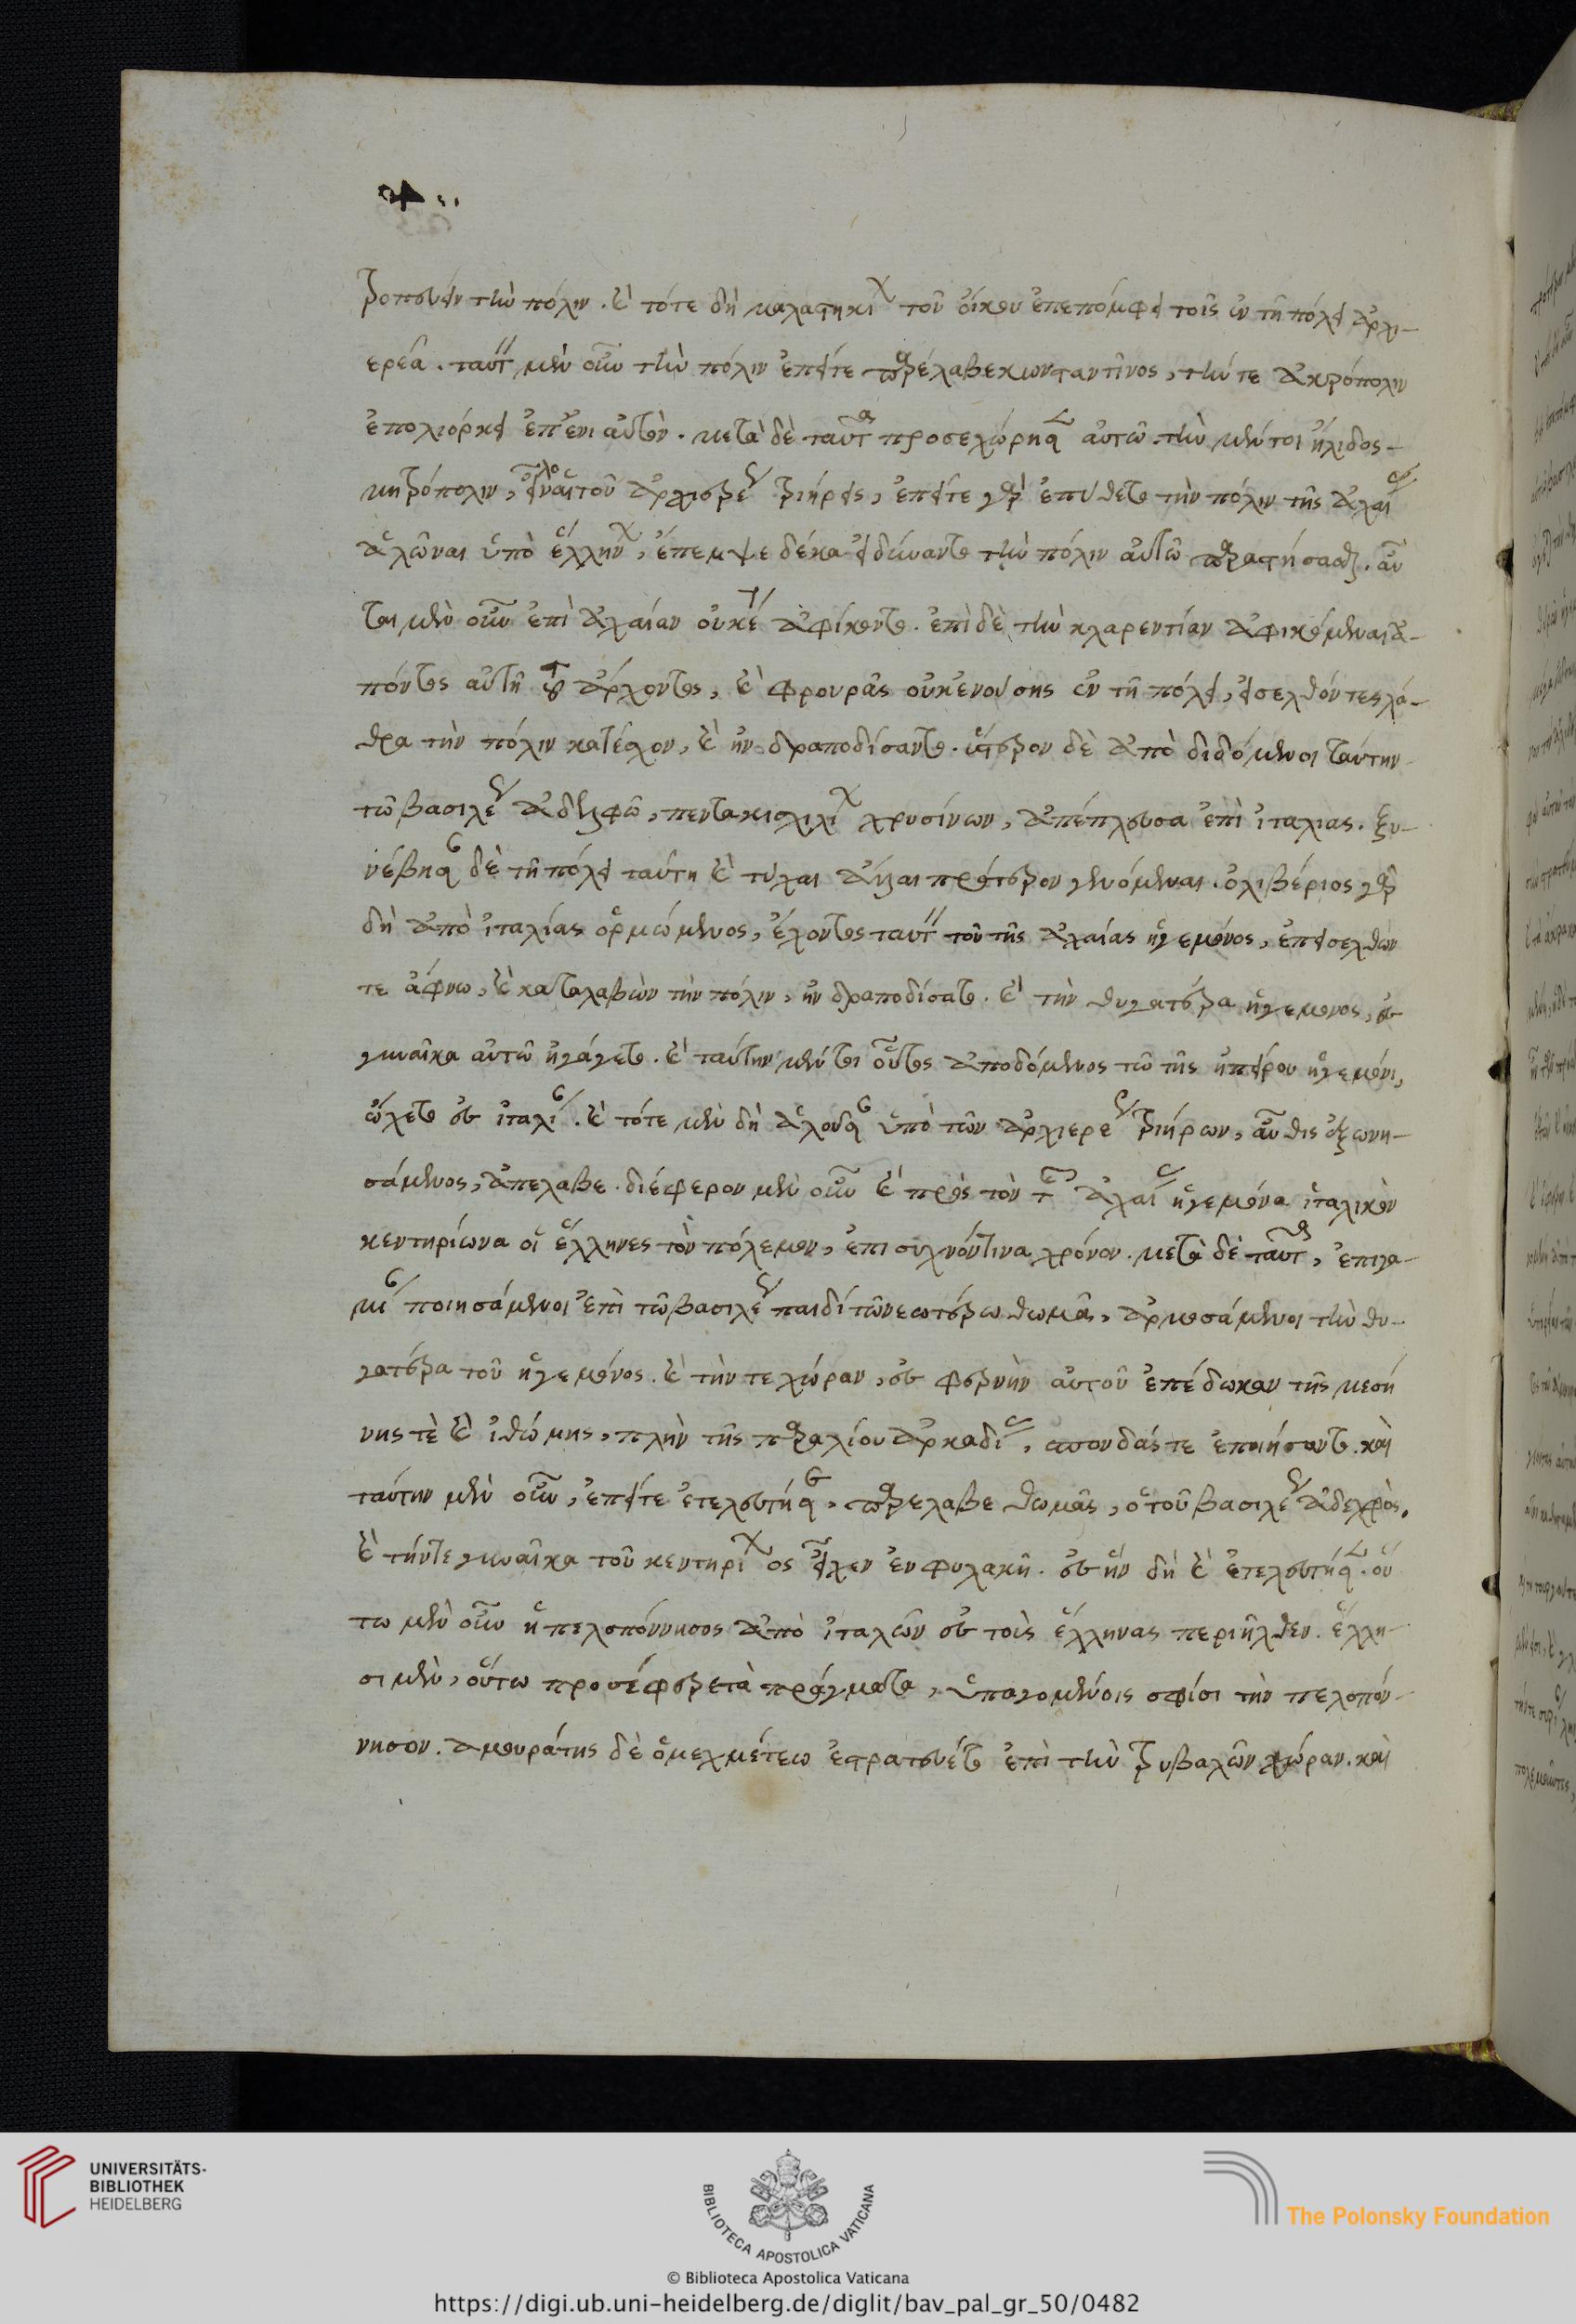 τροπεύειν τὴν πόλιν. καὶ τότε δὴ μαλατηκίων τοῦ οἴκου ἐπεπόμφει τοῖς ἐν τῇ πόλει ἀρχι-
ερέα. ταύτην μὲν οὖν τὴν πόλιν ἐπεί τε παρέλαβε κωνσταντῖνος, τήν τε ἀκρόπολιν
ἐπολιόρκει ἐπ' ἐνιαυτόν. μετὰ δὲ ταῦτα προσεχώρησαν αὐτῷ. τὴν μέντοι ἤλιδος
μητρόπολιν, εἷλον αἱ τοῦ ἀρχιερέως τριήρεις, ἐπεί τε γὰρ ἐπύθετο τὴν πόλιν τῆς ἀχαΐας
ἁλῶναι ὑπὸ ἑλλήνων, ἔπεμψε δέκα εἰ δύναιντο τὴν πόλιν αὐτῷ παραστήσασθαι. αὗ
ται μὲν οὖν ἐπὶ ἀχαΐαν οὐκέτι ἀφίκοντο. ἐπὶ δὲ τὴν κλαρεντίαν ἀφικόμεναι ἀ-
πόντος αὐτῇ τοῦ ἄρχοντος, καὶ φρουρᾶς οὐκ ἐνούσης ἐν τῇ πόλει, εἰσελθόντες λά-
θρα τὴν πόλιν κατέσχον, καὶ ἠνδραποδίσαντο. ὕστερον δὲ ἀποδιδόμενοι ταύτην
τῷ βασιλέως ἀδελφῷ, πεντακισχιλίων χρυσίνων, ἀπέπλευσαν ἐπὶ ἰταλίας. ξυ-
νέβησαν δὲ τῇ πόλει ταύτῃ καὶ τύχαι ἄλλαι πρότερον γενόμεναι. ὀλιβέριος γὰρ
δὴ ἀπὸ ἰταλίας ὁρμώμενος, ἔχοντος ταύτην τοῦ τῆς ἀχαΐας ἡγεμόνος, ἐπεισελθών
τε ἄφνω, καὶ καταλαβὼν τὴν πόλιν, ἠνδραποδίσατο. καὶ τὴν θυγατέρα ἡγεμόνος, ἐς
γυναῖκα αὐτῷ ἠγάγετο. καὶ ταύτην μέντοι οὗτος ἀποδόμενος τῷ τῆς ἠπείρου ἡγεμόνι,
ᾤχετο ἐς ἰταλίαν. καὶ τότε μὲν δὴ ἁλοῦσαν ὑπὸ τῶν ἀρχιερέως τριήρων, αὖθις ἐξωνη-
σάμενος, ἀπέλαβε. διέφερον μὲν οὖν καὶ πρὸς τὸν τῆς ἀχαΐας ἡγεμόνα ἰταλικὸν
κεντηρίωνα οἱ ἕλληνες τὸν πόλεμον, ἐπὶ συχνόν τινα χρόνον. μετὰ δὲ ταῦτα, ἐπιγα-
μίαν ποιησάμενοι ἐπὶ τῷ βασιλέως παιδὶ τῷ νεωτέρῳ θωμᾷ, ἁρμοσάμενοι τὴν θυ-
γατέρα τοῦ ἡγεμόνος. καὶ τήν τε χώραν, ἐς φερνὴν αὐτοῦ ἐπέδωκαν τῆς μεσή
νης τὲ καὶ ἰθώμης, πλὴν τῆς παραλίου ἀρκαδίας, σπονδάς τε ἐποιήσαντο. καὶ
ταύτην μὲν οὖν, ἐπεί τε ἐτελεύτησεν, παρέλαβε θωμᾶς, ὁ τοῦ βασιλέως ἀδελφός.
καὶ τήν τε γυναῖκα τοῦ κεντηρίωνος εἶχεν ἐν φυλακῇ. ἐς ἣν δὴ καὶ ἐτελεύτησεν. οὕ
τω μὲν οὖν ἡ πελοπόννησος ἀπὸ ἰταλῶν ἐς τοὺς ἕλληνας περιῆλθεν. ἕλλη-
σι μὲν, οὕτω προσέφερε τὰ πράγματα, ὑπαγομένοις σφίσι τὴν πελοπόν-
νησον. ἀμουράτης δὲ ὁ μεχμέτεω ἐστρατεύετο ἐπὶ τὴν τριβαλῶν χώραν. καὶ
UNIVERSITÄTS-
BIBLIOTHEK
HEIDELBERG
BIBLIOTECA APOSTOLICA VATICANA
The Polonsky Foundation
© Biblioteca Apostolica Vaticana
https://digi.ub.uni-heidelberg.de/diglit/bav_pal_gr_50/0482